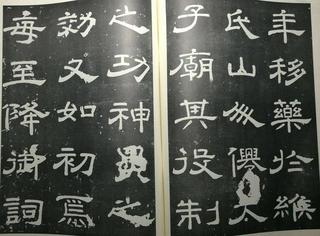 年移藥於緱
氏山升僊太
子廟其役制
之功神異之
効又如初焉
每至降御詞